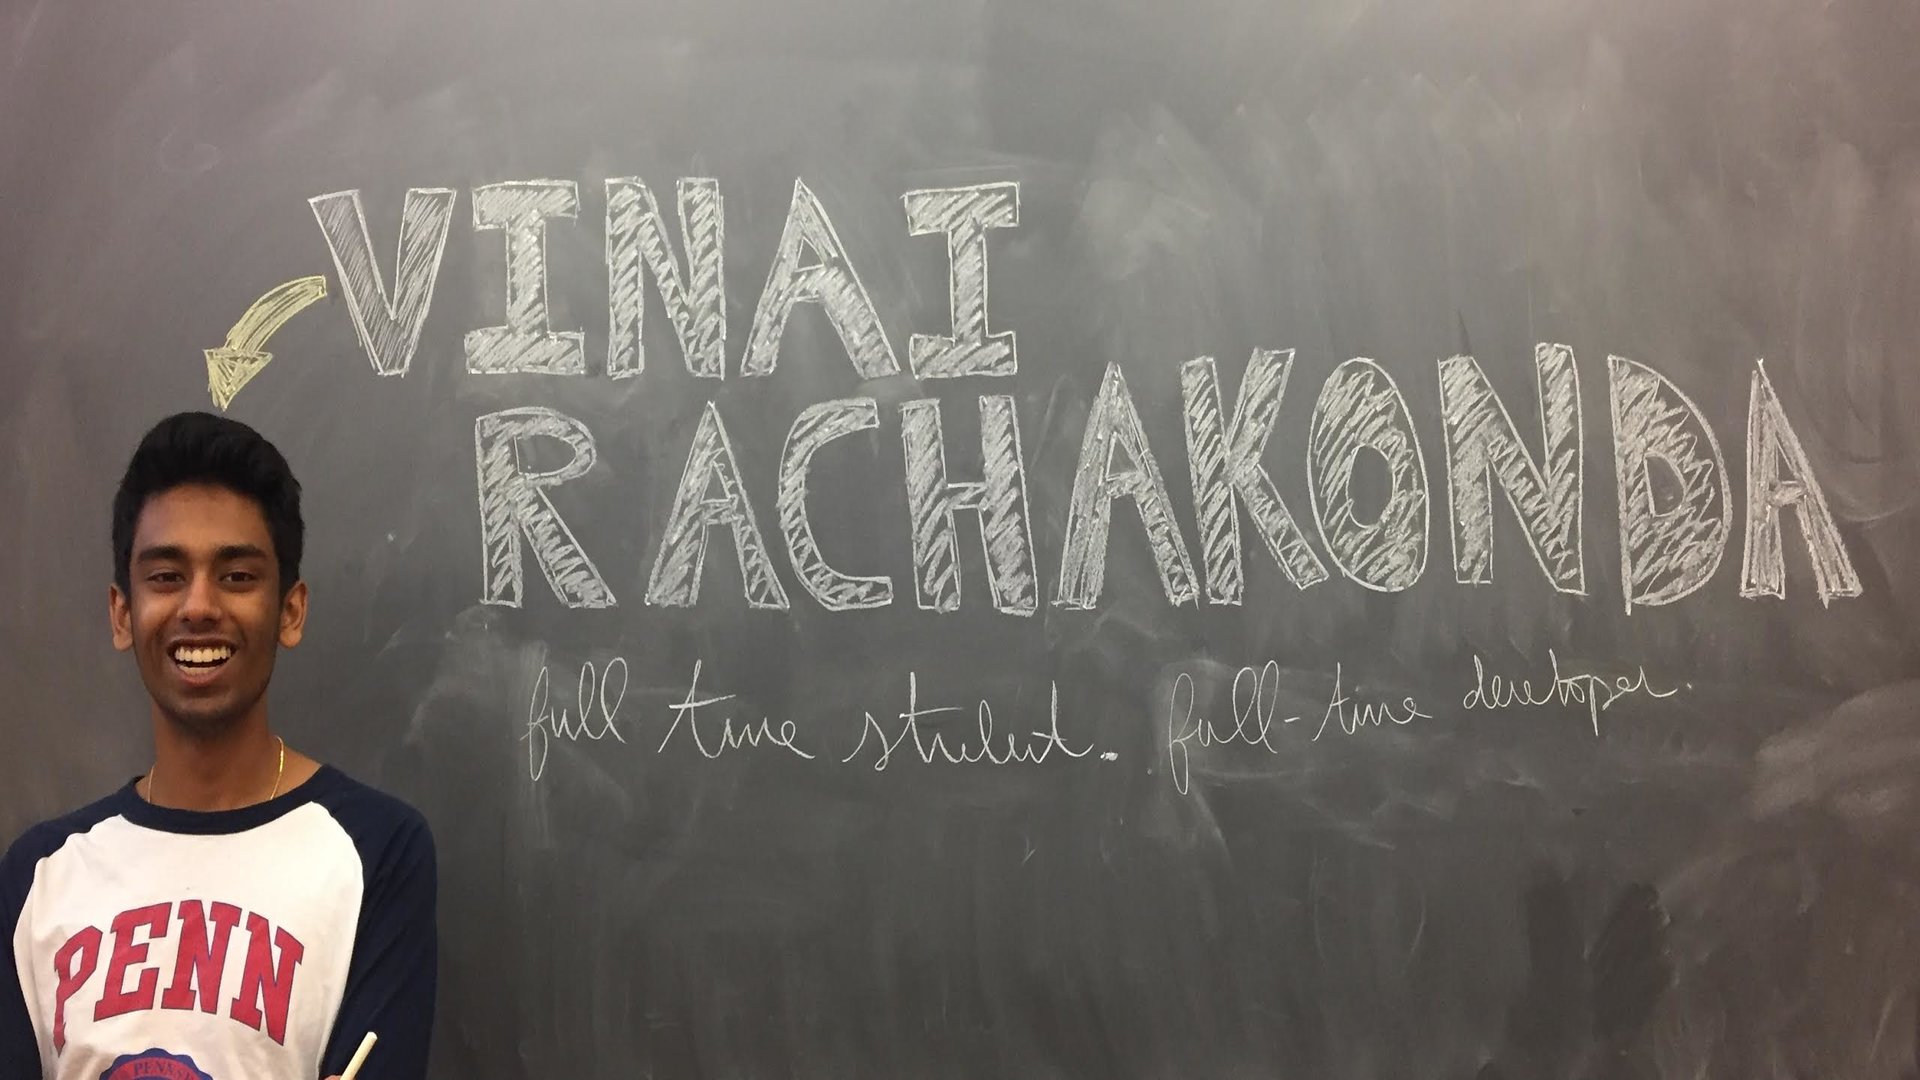 VINAI
RACHAKONDA
full time student. full-time developer.
PENN
PENNS